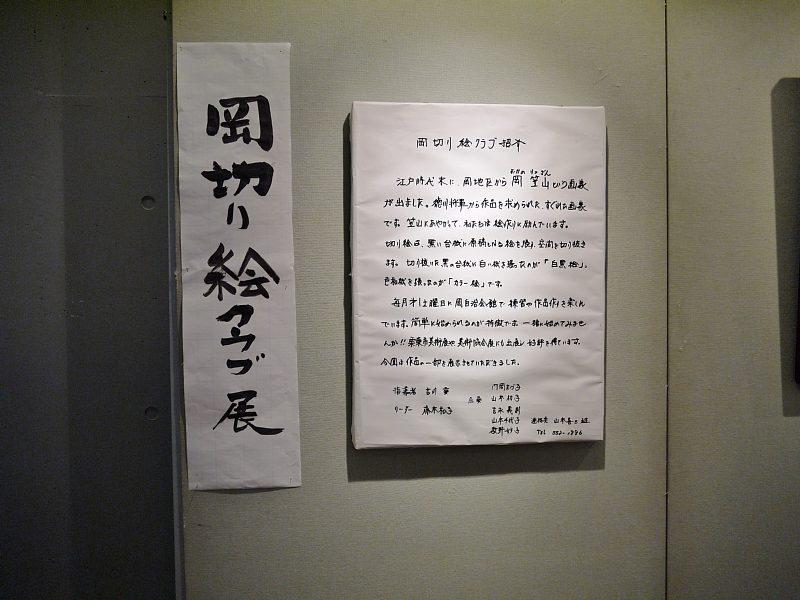 岡切り絵クラブ展
岡切り絵クラブ紹介
江戸時代末に、岡地区から岡笠山という画家
が出ました。徳川将軍から作品を求められた、すぐれた画家
です。笠山にあやかって、私たちは絵作りに励んでいます。
切り絵は、黒い台紙に原稿となる絵を貼り、空間を切り抜き
ます。切り抜いた黒の台紙に白い紙を張ったのが「白黒絵」、
色和紙を張ったのが「カラー絵」です。
毎月オ1土曜日に岡自治会館で練習や作品作りを楽しん
でいます。簡単に始められるのが特徴です。一緒に始めてみませ
んか!!栗東市美術展や美術協会展にも出展し好評を得ています。
今回は作品の一部を展示させていただきました。
指導者 吉川
リーダー 藤本 和子
会員
山本
吉永
山本千代子
連絡先 山本
TEL 552-1886